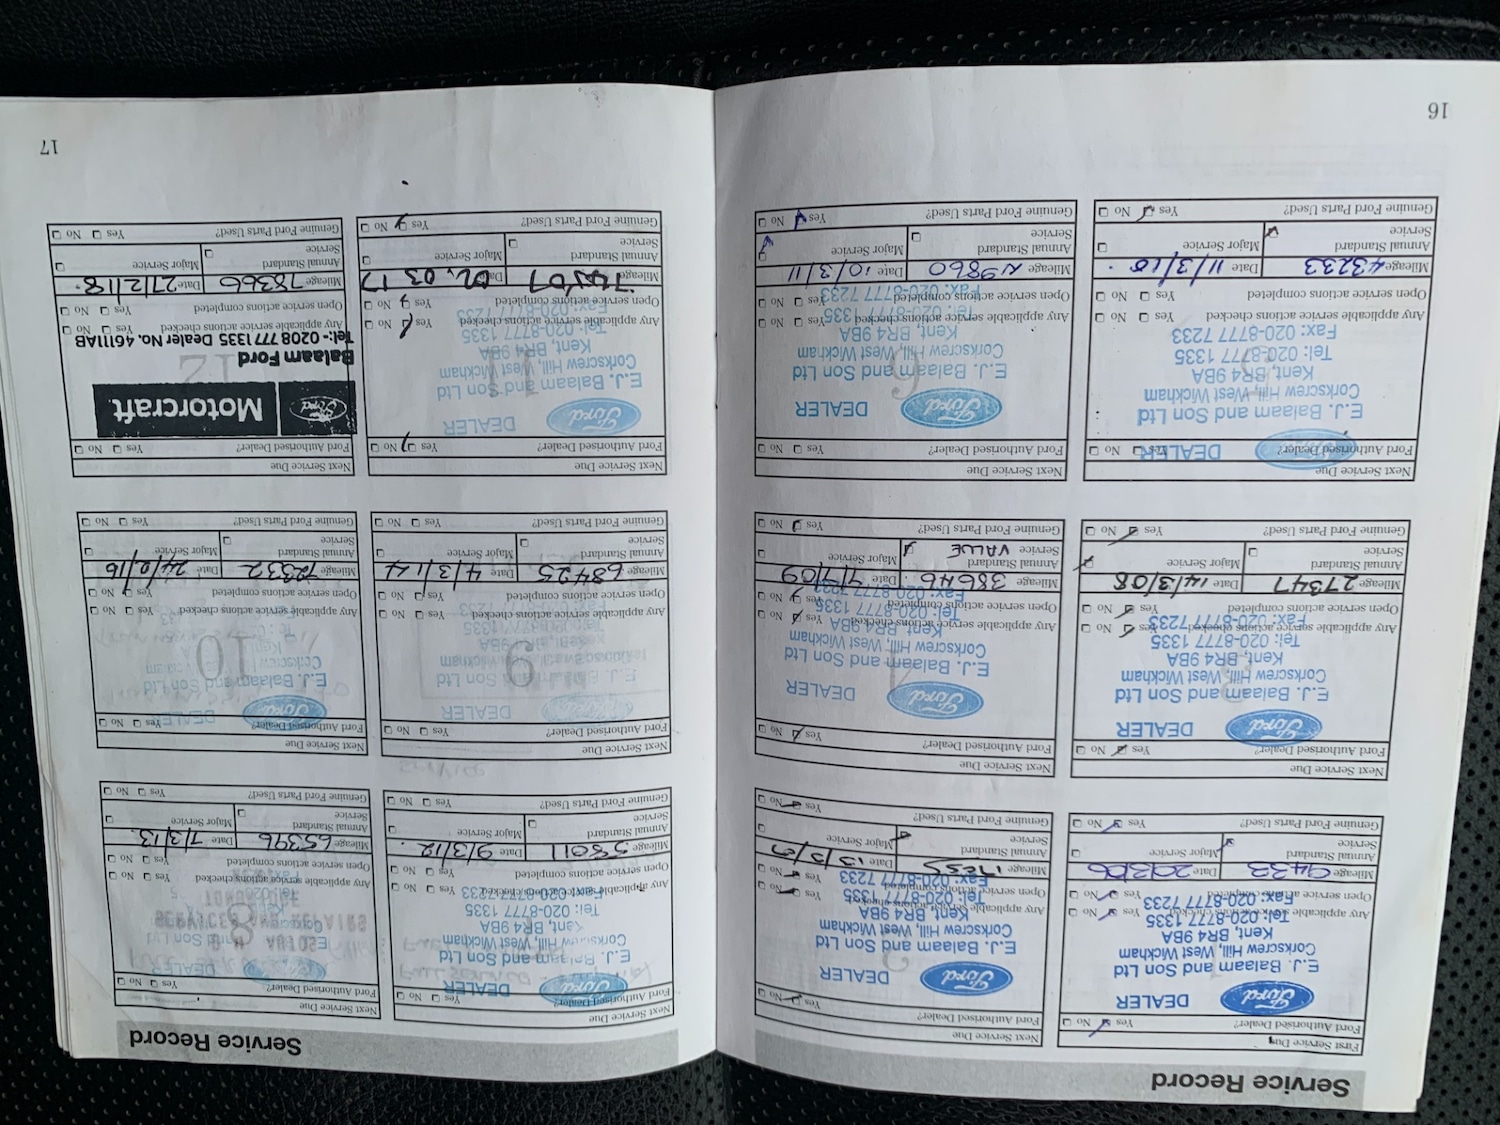 Service Record
First Service Due
Ford Authorised Dealer? Yes No
Ford DEALER
E.J. Balaam and Son Ltd
Corkscrew Hill, West Wickham
Kent, BR4 9BA
Tel: 020-8777 1335
Fax: 020-8777 7233
Any applicable service actions checked Yes No
Open service actions completed Yes No
Mileage 9433 Date 20/3/06
Annual Standard Service Major Service
Genuine Ford Parts Used? Yes No
Next Service Due
Ford Authorised Dealer? Yes No
Ford DEALER
E.J. Balaam and Son Ltd
Corkscrew Hill, West Wickham
Kent, BR4 9BA
Tel: 020-8777 1335
Fax: 020-8777 7233
Any applicable service actions checked Yes No
Open service actions completed Yes No
Mileage Date
Annual Standard Service Major Service
Genuine Ford Parts Used? Yes No
Next Service Due
Ford Authorised Dealer? Yes No
Ford DEALER
E.J. Balaam and Son Ltd
Corkscrew Hill, West Wickham
Kent, BR4 9BA
Tel: 020-8777 1335
Fax: 020-8777 7233
Any applicable service actions checked Yes No
Open service actions completed Yes No
Mileage 27347 Date 14/3/08
Annual Standard Service Major Service
Genuine Ford Parts Used? Yes No
Next Service Due
Ford Authorised Dealer? Yes No
Ford DEALER
E.J. Balaam and Son Ltd
Corkscrew Hill, West Wickham
Kent, BR4 9BA
Tel: 020-8777 1335
Fax: 020-8777 7233
Any applicable service actions checked Yes No
Open service actions completed Yes No
Mileage 38646 Date 7/7/09
Annual Standard Service VALUE Major Service
Genuine Ford Parts Used? Yes No
Next Service Due
Ford Authorised Dealer? Yes No
Ford DEALER
E.J. Balaam and Son Ltd
Corkscrew Hill, West Wickham
Kent, BR4 9BA
Tel: 020-8777 1335
Fax: 020-8777 7233
Any applicable service actions checked Yes No
Open service actions completed Yes No
Mileage 43233 Date 11/3/10
Annual Standard Service Major Service
Genuine Ford Parts Used? Yes No
Next Service Due
Ford Authorised Dealer? Yes No
Ford DEALER
E.J. Balaam and Son Ltd
Corkscrew Hill, West Wickham
Kent, BR4 9BA
Tel: 020-8777 1335
Fax: 020-8777 7233
6
Any applicable service actions checked Yes No
Open service actions completed Yes No
Mileage 49860 Date 10/3/11
Annual Standard Service Major Service
Genuine Ford Parts Used? Yes No
16
Service Record
Next Service Due
Ford Authorised Dealer? Yes No
Ford DEALER
E.J. Balaam and Son Ltd
Corkscrew Hill, West Wickham
Kent, BR4 9BA
Tel: 020-8777 1335
Fax: 020-8777 7233
Any applicable service actions checked Yes No
Open service actions completed Yes No
Mileage 58011 Date 9/3/12
Annual Standard Service Major Service
Genuine Ford Parts Used? Yes No
Next Service Due
Ford Authorised Dealer? Yes No
DEALER
8
Any applicable service actions checked Yes No
Open service actions completed Yes No
Mileage 65396 Date 7/3/13
Annual Standard Service Major Service
Genuine Ford Parts Used? Yes No
Service
Next Service Due
Ford Authorised Dealer? Yes No
DEALER
E.J. Balaam and Son Ltd
9
Any applicable service actions checked Yes No
Open service actions completed Yes No
Mileage 68425 Date 4/3/14
Annual Standard Service Major Service
Genuine Ford Parts Used? Yes No
Next Service Due
Ford Authorised Dealer? Yes No
Ford DEALER
E.J. Balaam and Son Ltd
10
Any applicable service actions checked Yes No
Open service actions completed Yes No
Mileage 72332 Date 24/6/16
Annual Standard Service Major Service
Genuine Ford Parts Used? Yes No
Next Service Due
Ford Authorised Dealer? Yes No
Ford DEALER
E.J. Balaam and Son Ltd
Corkscrew Hill, West Wickham
Kent, BR4 9BA
Tel: 020-8777 1335
Fax: 020-8777 7233
11
Any applicable service actions checked Yes No
Open service actions completed Yes No
Mileage Date 02.03 17
Annual Standard Service Major Service
Genuine Ford Parts Used? Yes No
Next Service Due
Ford Authorised Dealer? Yes No
Ford Motorcraft
12
Balaam Ford
Tel:- 0208 777 1335 Dealer No. 46111AB
Any applicable service actions checked Yes No
Open service actions completed Yes No
Mileage 78366 Date 27/2/18
Annual Standard Service Major Service
Genuine Ford Parts Used? Yes No
17